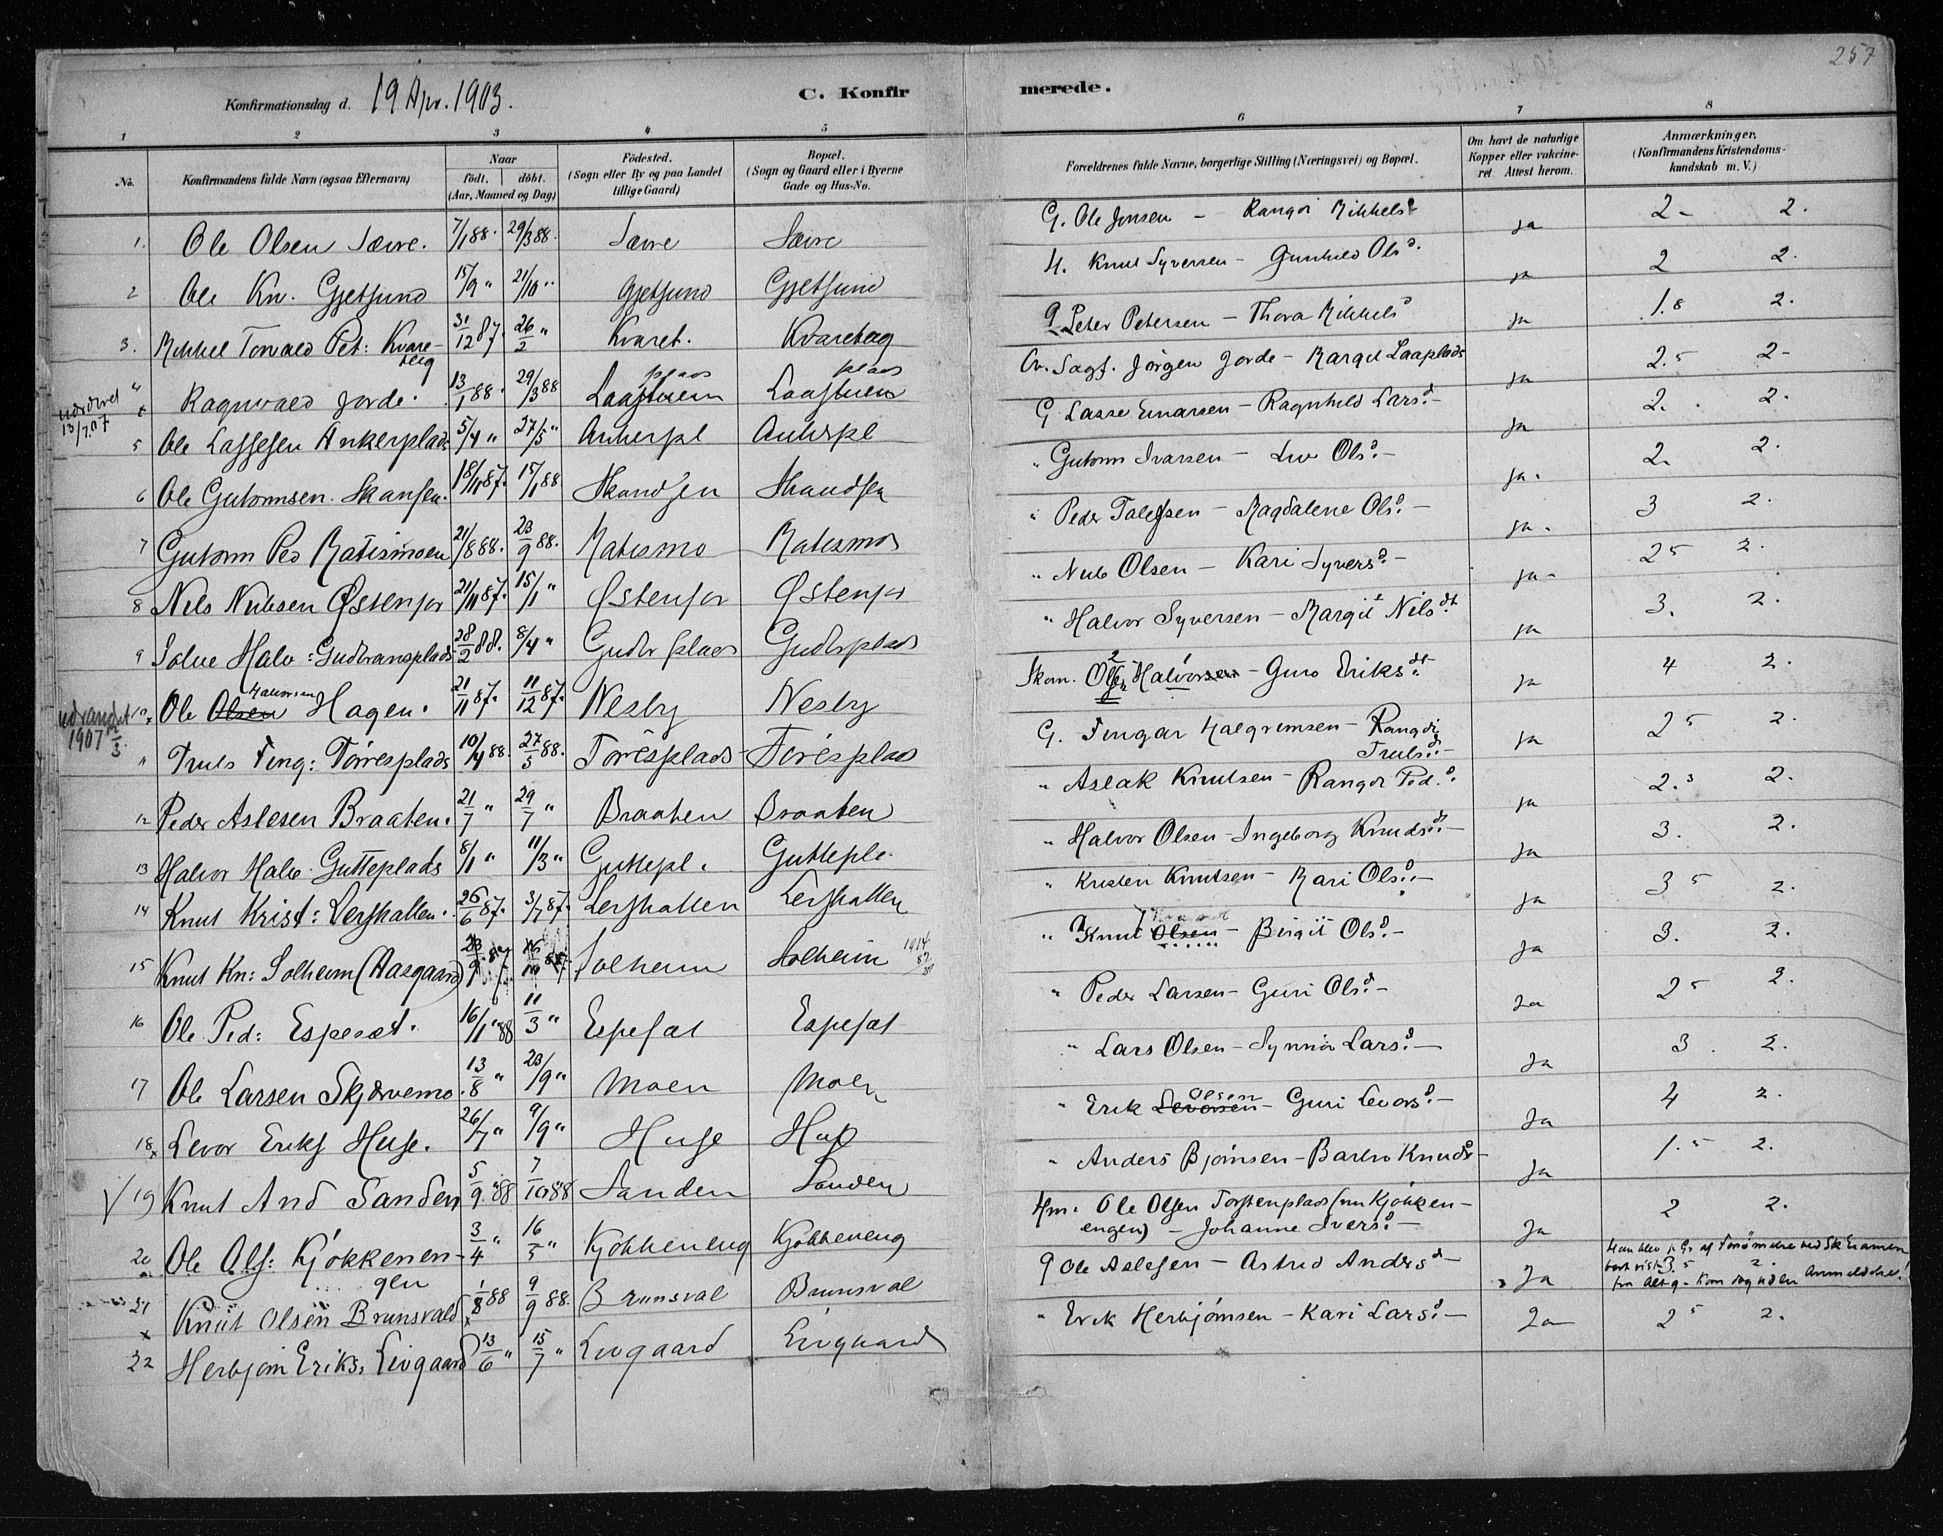 257
Konfirmationsdag d. 19 Apr. 1903. C. Konfirmerede.
1 2 3 4 5 6 7 8
No. Konfirmandens fulde Navn (ogsaa Efternavn) Naar født, døbt. (Aar, Maaned og Dag) Fødested. (Sogn eller By og paa Landet tillige Gaard) Bopæl. (Sogn og Gaard eller i Byerne Gade og Hus-No. Forældrenes fulde Navne, borgerlige Stilling (Næringsvei) og Bopæl. Om havt de naturlige Kopper eller vakcineret. Attest herom. Anmærkninger. (Konfirmandens Kristendomskundskab m. V.)
1. Ole Olsen Sævre. 7/1 88. 29/3 88. Sævre Sævre G. Ole Jensen – Rangdi Mikkelsd ja 2– 2.
2 Ole Kn. Gjetsund 15/9 " 21/10 " Gjetsund Gjetsund H. Knut Syversen – Gunhild Olsd. ja 2 2.
3. Mikkel Torvald Pet: Kvareteig 31/12 87. 26/2 " Kvaret. Kvareteig G Peter Petersen – Thora Mikkelsd ja 1.8 2.
udvandret 13/7 07
4 x Ragnvald Jorde. 13/1 88. 29/3 88 plads plads Jørgen Jorde – Margit Laaplads ja 2.5 2–
5 Ole Lassesen Ankerplads 5/4 " 27/5 " Ankerpl Ankerpl G Lasse Einarsen – Ragnhild Larsd. – ja 2. 2.
6 Ole Gutormsen Skansen. 18/11 87. 15/1 88 Skandsen Skandsen " Gutorm Ivarsen – Liv Olsd. – ja. 2. 2.
7 Gutorm Ped Matismoen 21/8 88. 23/9 88. Matismo Matismo " Peder Tolefsen – Magdalene Olsd. – ja. 3 2.
8 Nils Nubsen Østenfor 21/11 87. 15/1 " Østenfor Østenfor " Nub Olsen – Kari Syversd. – ja – 2 5 2.
9 Halv: Gudbransplads 28/2 88. 8/4 " Gudbr plads Gudbrplads " Halvor Syversen – Margit Nilsdt. ja 3. 2.
udvandret 1907 12/3
10 x Ole Olsen Halvorsen Hagen. 21/11 87. 11/12 87. Nesby Nesby Skom. Halvorsen – Guro Eriksdt. ja 4 2.
" Truls Fing: Torresplads 10/4 88. 27/5 88. Torresplads Toresplads G. Fingar Halgrimsen – Rangdi Trulsd. – ja 2 5 2.
12 Peder Aslesen Braaten. 21/7 " 29/7 " Braaten Braaten " Aslak Knutsen – Rangdi Ped.d. ja 2.3 2.
13 Halvor Halv. Gutteplads 8/1 " 11/3 " Guttepl. Guttepl. " Halvor Olsen – Ingeborg Knudsd. – ja 3. 2.
14 Knut Krist: Lerskallen. 26/6 87. 3/7 87. Lerskallen Lerskallen " Kristen Knutsen – Kari Olsd. – ja 3 5 2.
15 Knut Kn: Solheim (Aasgaard) Solheim Solheim " Knut Olsen – Birgit Olsd. – ja 3. 2.
16 Ole Ped: Espeset. 16/1 88 11/3 " Espeset Espeset " Peder Larsen – Guri Olsd. – Ja 2 5 2.
17 Ole Larsen Skjærvemo. 13/8 " 23/9 " Moen Moen " Lars Olsen – Synnøv Larsd. – Ja 3. 2.
18 x Levor Eriks Huse. 26/7 " 9/9 " Huse Hus " Erik Levorsen Olsen – Guri Levorsd. – Ja 4 2.
V 19 Knut And Sanden 5/9 88 7/10 88 Sanden Sanden " Anders Bjørnsen – Barbro Knudsd – Ja 1.5 2.
20 Ole Ols: Kjøkkenengen 3/4 " 16/5 " Kjøkkeneng Kjøkkeneng Hm. Ole Olsen Torstenplads (nu Kjøkkenengen) – Johanne Iversd. – Ja 2 2.
21 x Knut Olsen Brunsvald 1/8 88 9/9 88. Brunsval Brunsval G Ole Aslesen – Astrid Andersd – Ja Han blev p. Gr. af Forsømmelse ved Sk Examen bortvist 3. 5 2. fra Altg. – Kom sig uden Anmeldelse!
22 Herbjørn Eriks: Livgaard 13/6 " 15/7 " Livgaard Livgaard " Erik Herbjørnsen – Kari Larsd. – Ja 2 5 2.